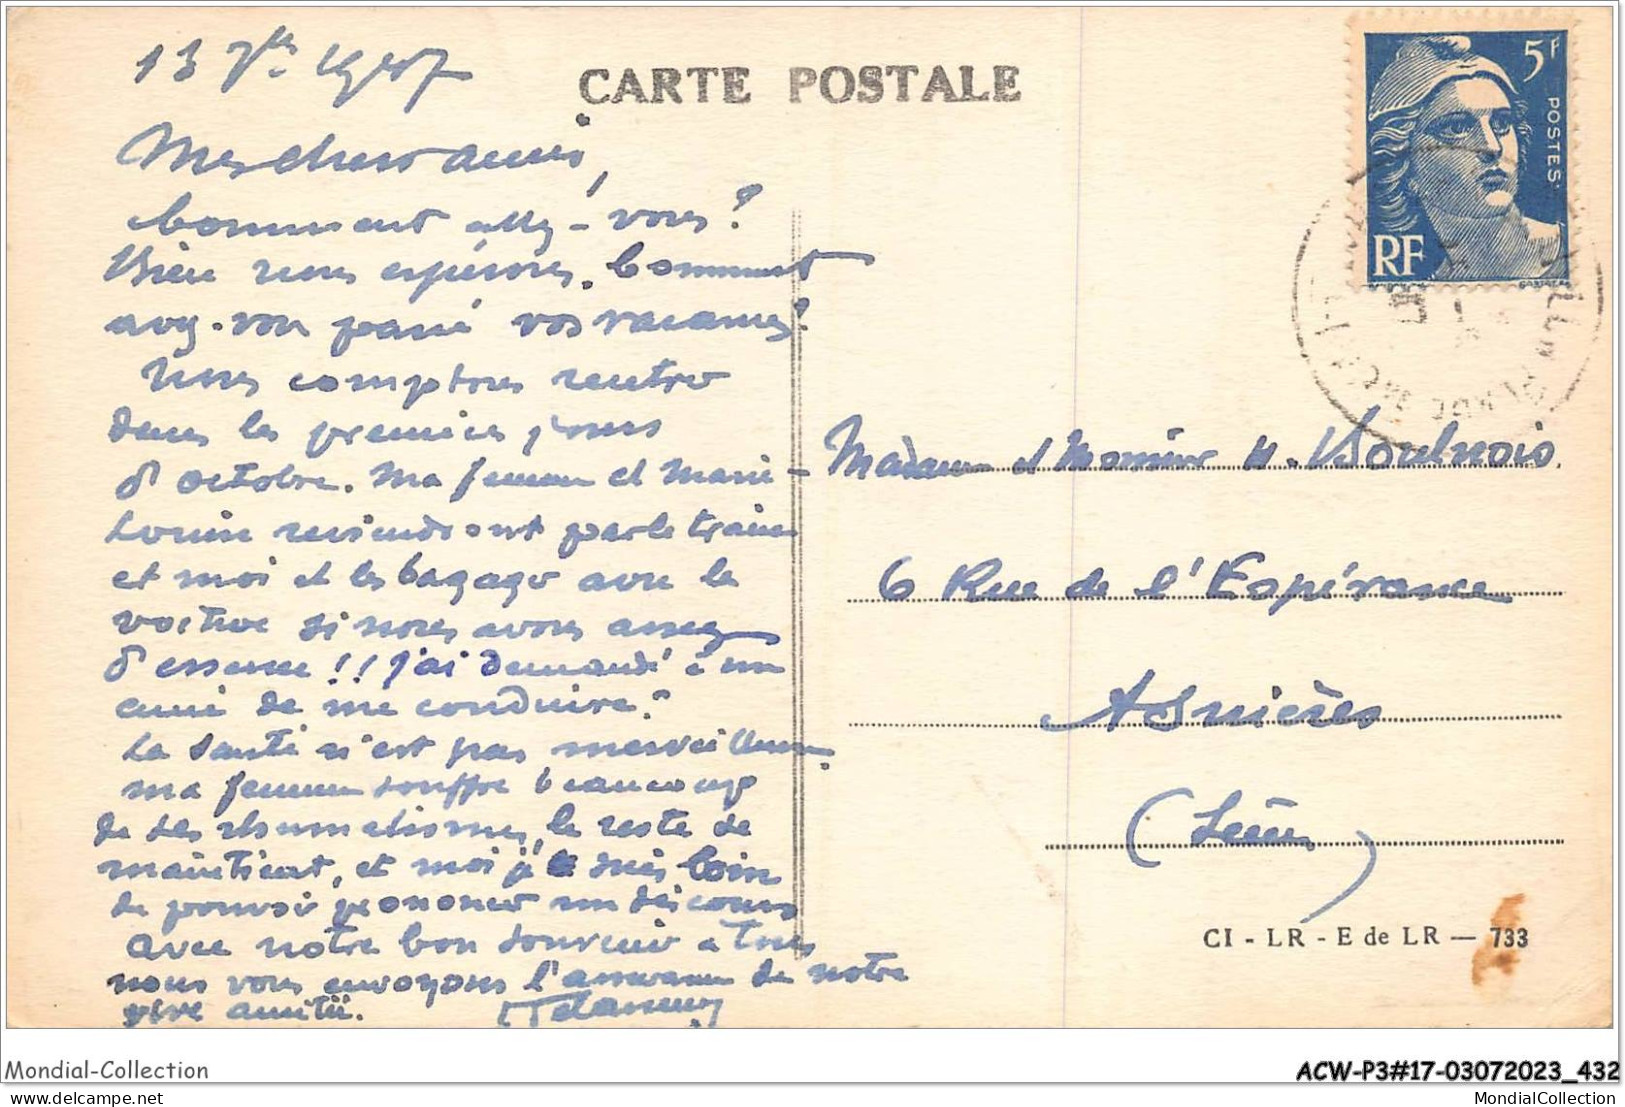 13 7bre 1947
CARTE POSTALE
5F
POSTES
RF
Mes chers amis,
Comment allez-vous?
Bien nous espérons. Comment
avez-vous passé vos vacances?
Nous comptons rentrer
dans les premiers jours
d'octobre. Ma femme et Marie-
Louise reviendront par le train
et moi et les bagages avec la
voiture si nous avons assez
d'essence!! J'ai demandé à un
ami de me conduire.
La santé n'est pas merveilleuse.
ma femme souffre beaucoup
de ses rhumatismes, le reste se
maintient, et moi je suis loin
de pouvoir prononcer un discours
avec notre bon souvenir à tous
nous vous envoyons l'assurance de notre
vive amitié.
Madame et Monsieur H. Boulnois
6 Rue de l'Espérance
Asnières
(Seine)
CI - LR - E de LR — 733
Mondial-Collection
ACW-P3#17-03072023_432
delcampe.net
MondialCollection